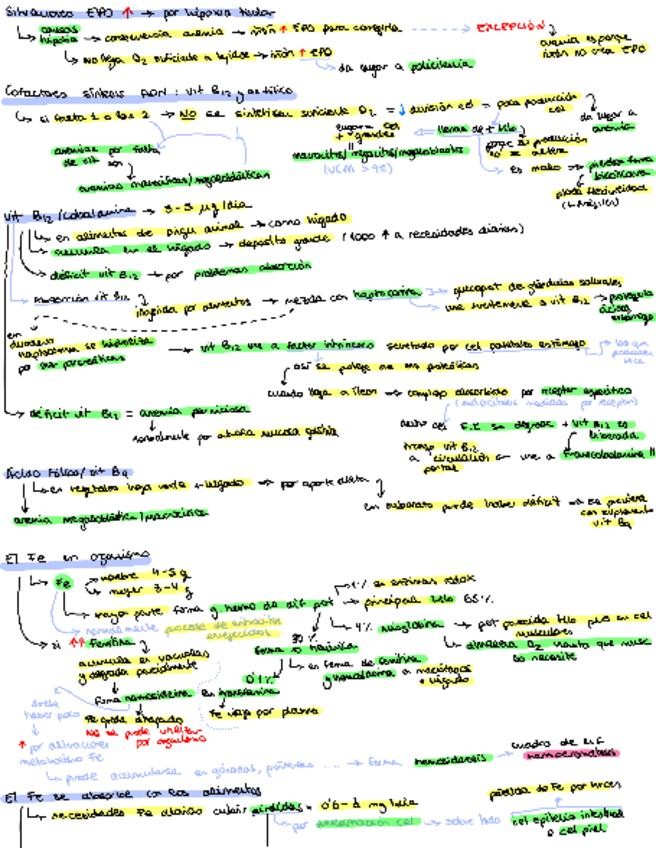 EPO ↑ → por hipoxia tisular
causas hipoxia → consecuencia anemia → riñón ↑ EPO para corregirla → EXCEPCIÓN
anemia es porque riñón no crea EPO
↳ No llega O2 suficiente a tejidos → riñón ↑ EPO
da lugar a policitemia
Cofactores síntesis ADN: vit B12 y ac fólico
↳ si falta 1 o las 2 → NO se sintetiza suficiente = ↓ división cel = poca producción cel
da lugar a anemia
anemias por falta de vit son
anemias macrocíticas/megaloblásticas
+ grandes
macrocitos/megalocitos/megaloblastos
(VCM > 95)
llenas de + Hb
Es malo →
poca flexibilidad
vit B12/cobalamina → 3-5 µg/día
↳ en alimentos de origen animal → como hígado
↳ acumula en el hígado → depósito grande (1000 ↑ a necesidades diarias)
déficit vit B12 → por problemas absorción
Absorción vit B12
ingerida por alimentos → mezcla con haptocorrina → de glándulas salivales
une fuertemente a vit B12 → protegerla ácidos estómago
en duodeno haptocorrina se hidroliza por enz pancreáticas → vit B12 une a factor intrínseco secretado por cel parietales estómago
así se protege de enz proteolíticas
cuando llega a íleon → complejo absorbido por receptor específico
(endocitosis mediada por receptor)
dentro cel F.I. se degrada + vit B12 es liberada
une a transcobalamina II
a circulación portal
déficit vit B12 = anemia perniciosa
normalmente por atrofia mucosa gástrica
Ácido Fólico/vit B9
↳ en vegetales hoja verde + hígado → por aporte dieta
anemia megaloblástica/macrocítica
en embarazo puede haber déficit → se previene con suplemento vit B9
El Fe en organismo
↳ Fe
hombre 4-5 g
mujer 3-4 g
↳ mayor parte forma g. hemo de dif prot → principal Hb 65%
1% en enzimas redox
4% mioglobina → prot parecida Hb pero en cel musculares
↳ almacena O2 hasta que musc lo necesite
normalmente procede de eritrocitos envejecidos
30%
en forma de ferritina y hemosiderina a macrófagos + hígado
0'1% en transferrina
Fe viaja por plasma
↳ si ↑↑ ferritina
acumula en vacuolas y degrada parcialmente
forma hemosiderina
Fe queda atrapado
No se puede utilizar por organismo
haber poco
↑ por alteraciones metabolismo Fe
↳ puede acumularse en gónadas, páncreas ... → forma hemosiderosis → cuadro de hemocromatosis
El Fe se absorbe con los alimentos
↳ necesidades Fe diarias cubrir pérdidas = 0'6-1 mg/día
↳ por descamación cel → sobre todo cel epitelio intestinal o cel piel
pérdida de Fe por heces